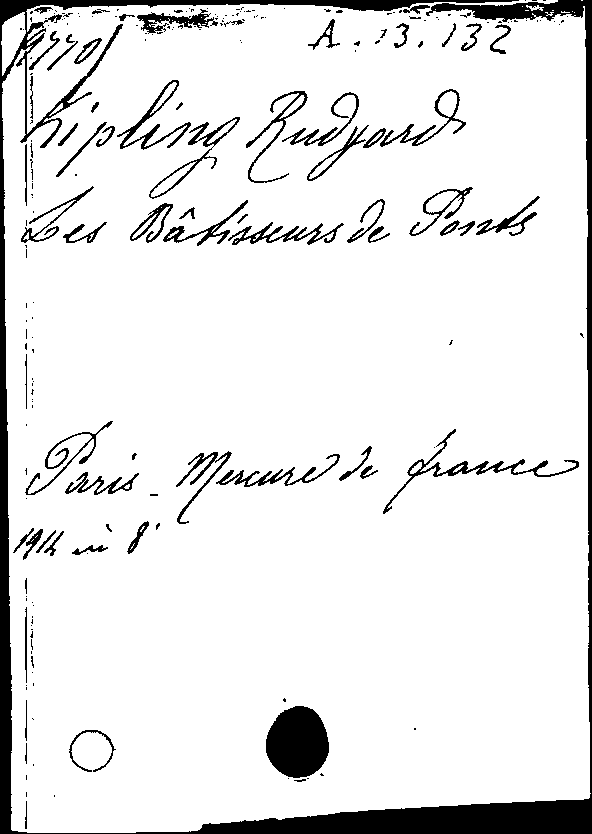 A.13.132
Kipling Rudyard
Les Bâtisseurs de Ponts
Paris - Mercure de france
1914 in 8°